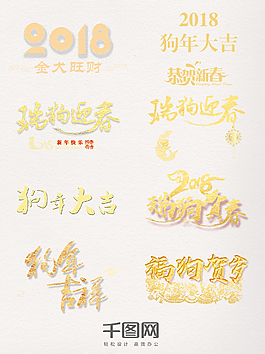 2018
金犬旺财
2018
狗年大吉
恭贺新春
瑞狗迎春
新年快乐
瑞狗迎春
狗年大吉
2018
瑞狗贺春
狗年
吉祥
福狗贺岁
千图网
轻松设计 高效办公